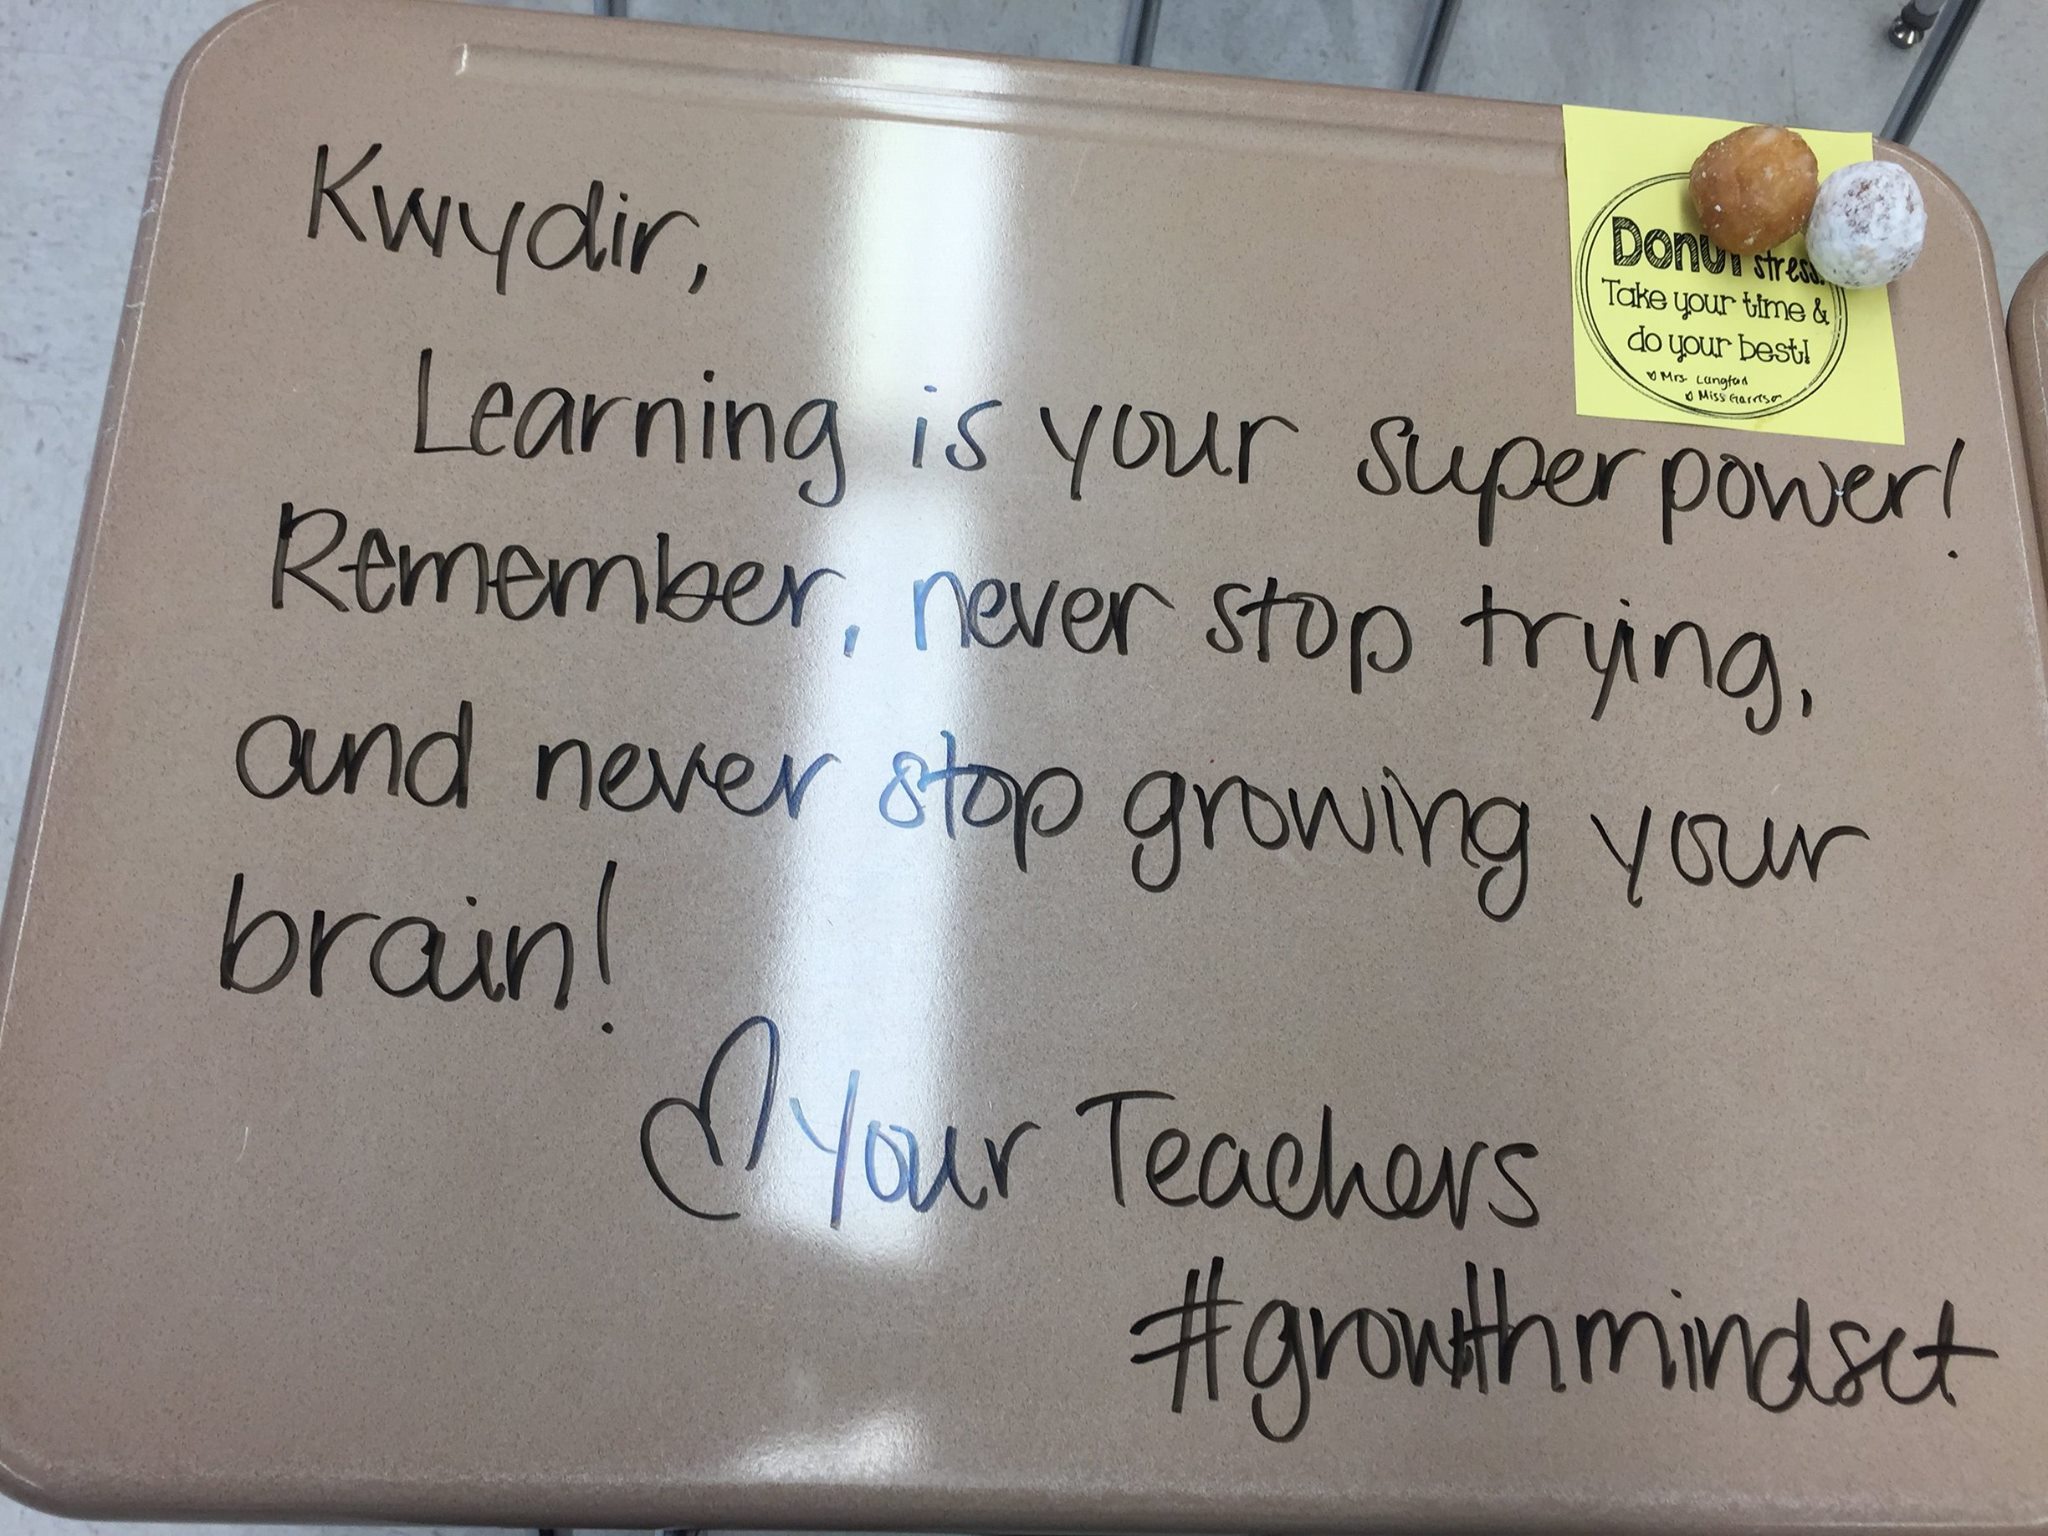 Kwydir,
Learning is your superpower!
Remember, never stop trying,
and never stop growing your
brain!
♡ Your Teachers
#growthmindset
DONUT stress!
Take your time &
do your best!
♡ Mrs. Langford
♡ Miss Garrison